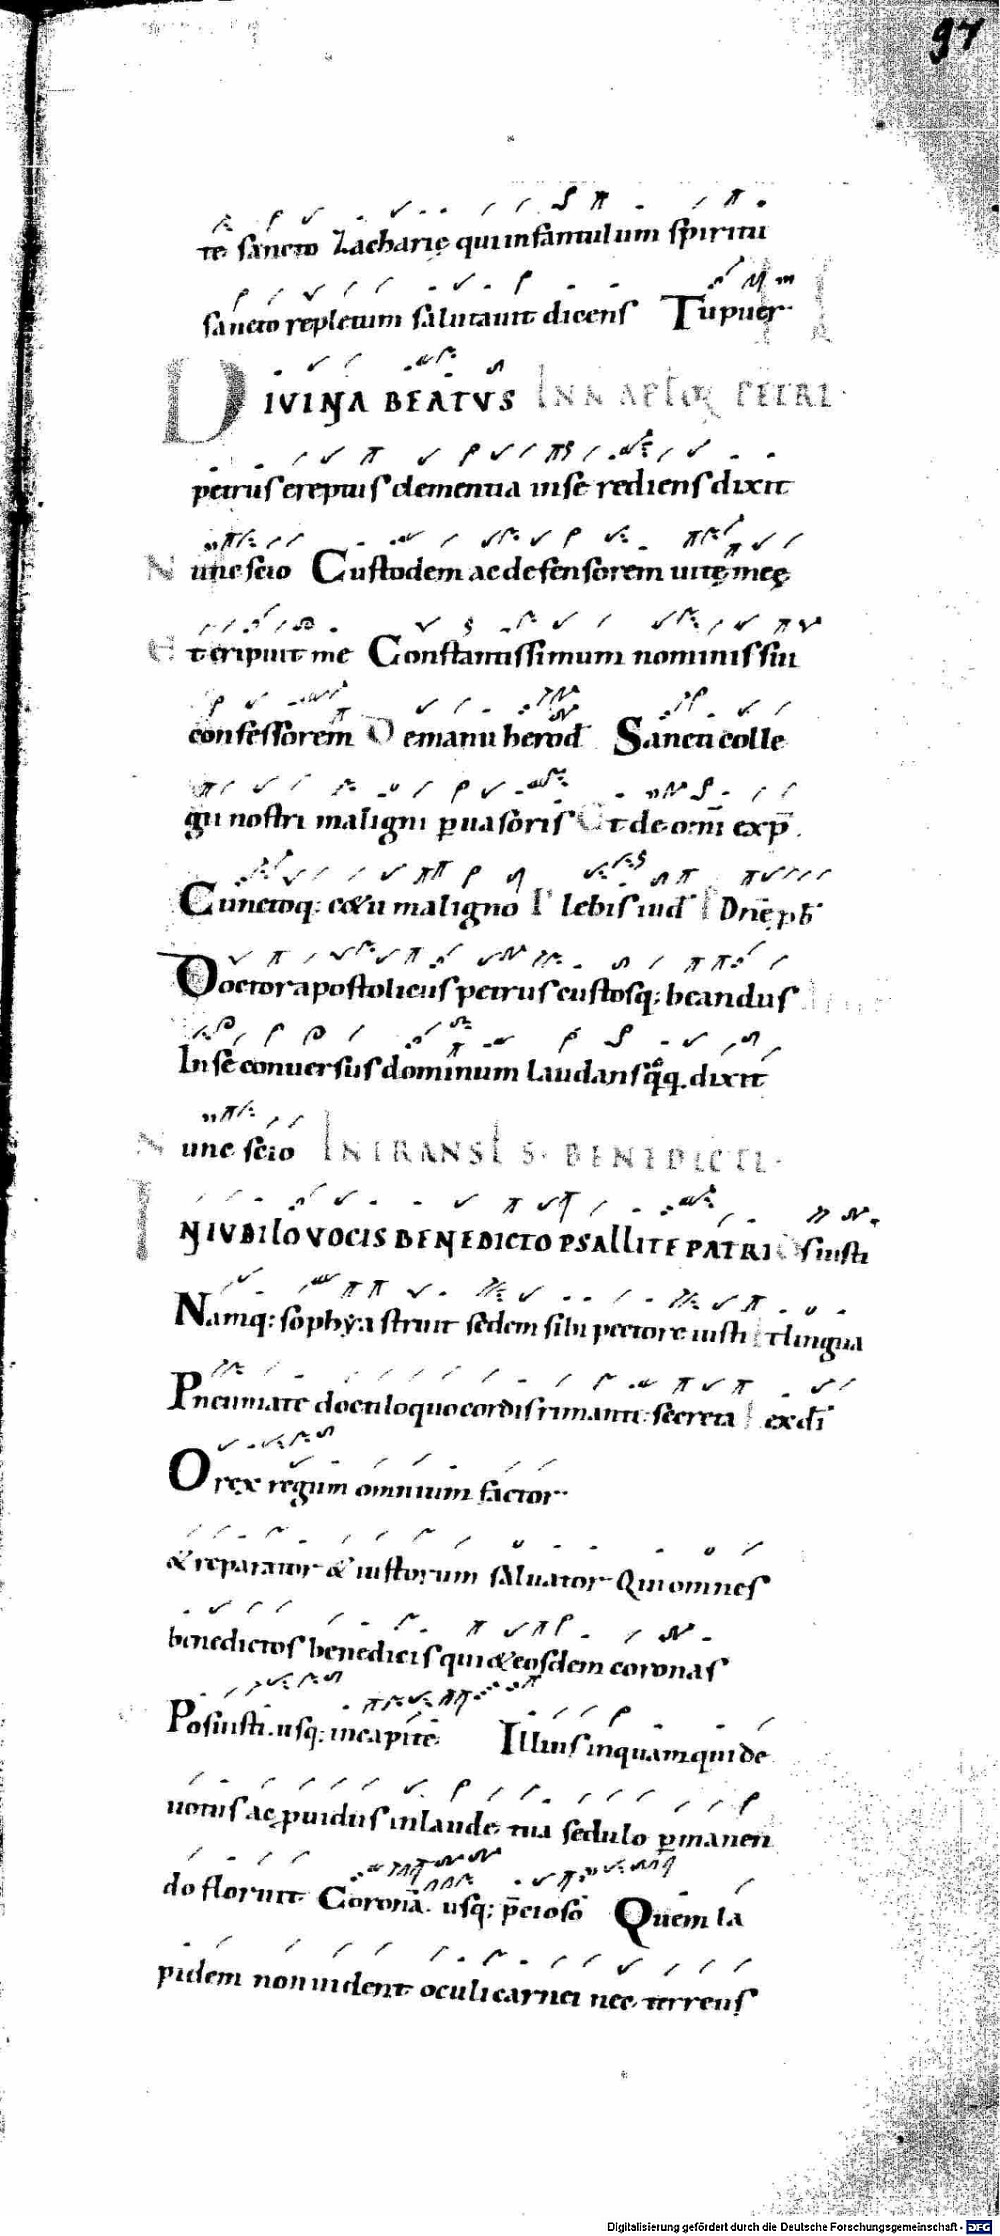 97
te sancto Zacharię qui infantulum spiritu
sancto repletum salutauit dicens Tu puer
DIVINA BEATVS IN NAT APLOꝜ PETRI.
petrus ereptus clementia in se rediens dixit
Nunc scio Custodem ac defensorem uitę meę
Et eripuit me Constantissimum nominis sui
confessorem De manu herod Sancti colle
gii nostri maligni ꝑuasoris Et de om̄i exp̄.
Cunctoq: cętu maligno P lebis iud Dn̄ę ꝓb
Doctor apostolicus petrus custosq: beandus
In se conuersus dominum laudansq̊q. dixit
Nunc scio IN TRANSĪ S. BENEDICTI.
IN IVBILO VOCIS BENEDICTO PSALLITE PATRI Os iusti
Namq: sophya struit sedem sibi pectore iusti Et lingua
Pneumate docti loquo cordis rimante secreta Lex dī
O rex regum omnium factor
& reparator & iustorum saluator Qui omnes
benedictos benedicis qui & eosdem coronas
Posuisti. usq: in capite. Illius inquam qui de
uotus ac ꝓuidus in laude tua sedulo ꝑmanen
do floruit Coronā. usq: p̄cioso Quem la
pidem non uident oculi carnei nec terrens
Digitalisierung gefördert durch die Deutsche Forschungsgemeinschaft - DFG